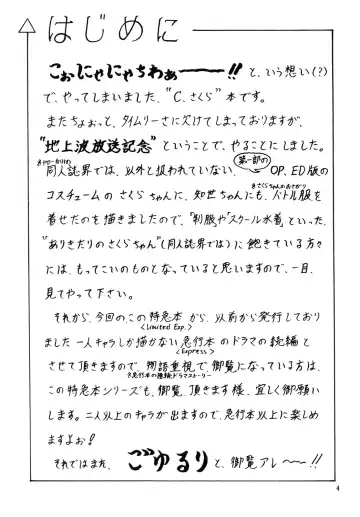 はじめに
こぉにゃにゃちわぁーーー!!と、いう想い(?)
で、やってしまいました、“C.さくら”本です。
またちょおっと、タイムリーさに欠けてしまっておりますが、
“地上波放送記念”ということで、やることにしました。
同人誌界では、以外と扱われていない、第一部のOP、ED版の
※さくらちゃんのおさがり
コスチュームのさくらちゃんに、知世ちゃんにも、バトル服を
着せたのを描きましたので、“制服や”スクール水着”といった、
“ありきたりのさくらちゃん”(同人誌界では)に飽きている方々
には、もってこいのものとなっていると思いますので、一目、
見てやって下さい。
それから、今回の、この特急本から、以前から発行しており
<Limited Exp.>
ました一人キャラしか描かない急行本のドラマの続編と
<Express>
させて頂きますので、物語重視で、御覧になっている方は、
※急行本の続編ドラマストーリー
この特急本シリーズも、御覧、頂きます様、宜しく御願い
します。二人以上のキャラが出ますので、急行本以上に楽しめ
ますよぉ!
それではまぁ、ごゆるりと、御覧アレ〜〜!!
4